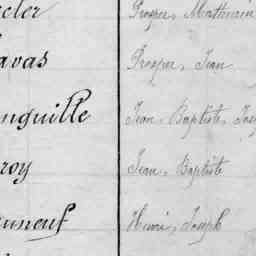 cler Prosper, Mathurin
avas Prosper, Jean
nguille Jean, Baptiste, Jos
roy Jean, Baptiste
euneuf Henri, Joseph